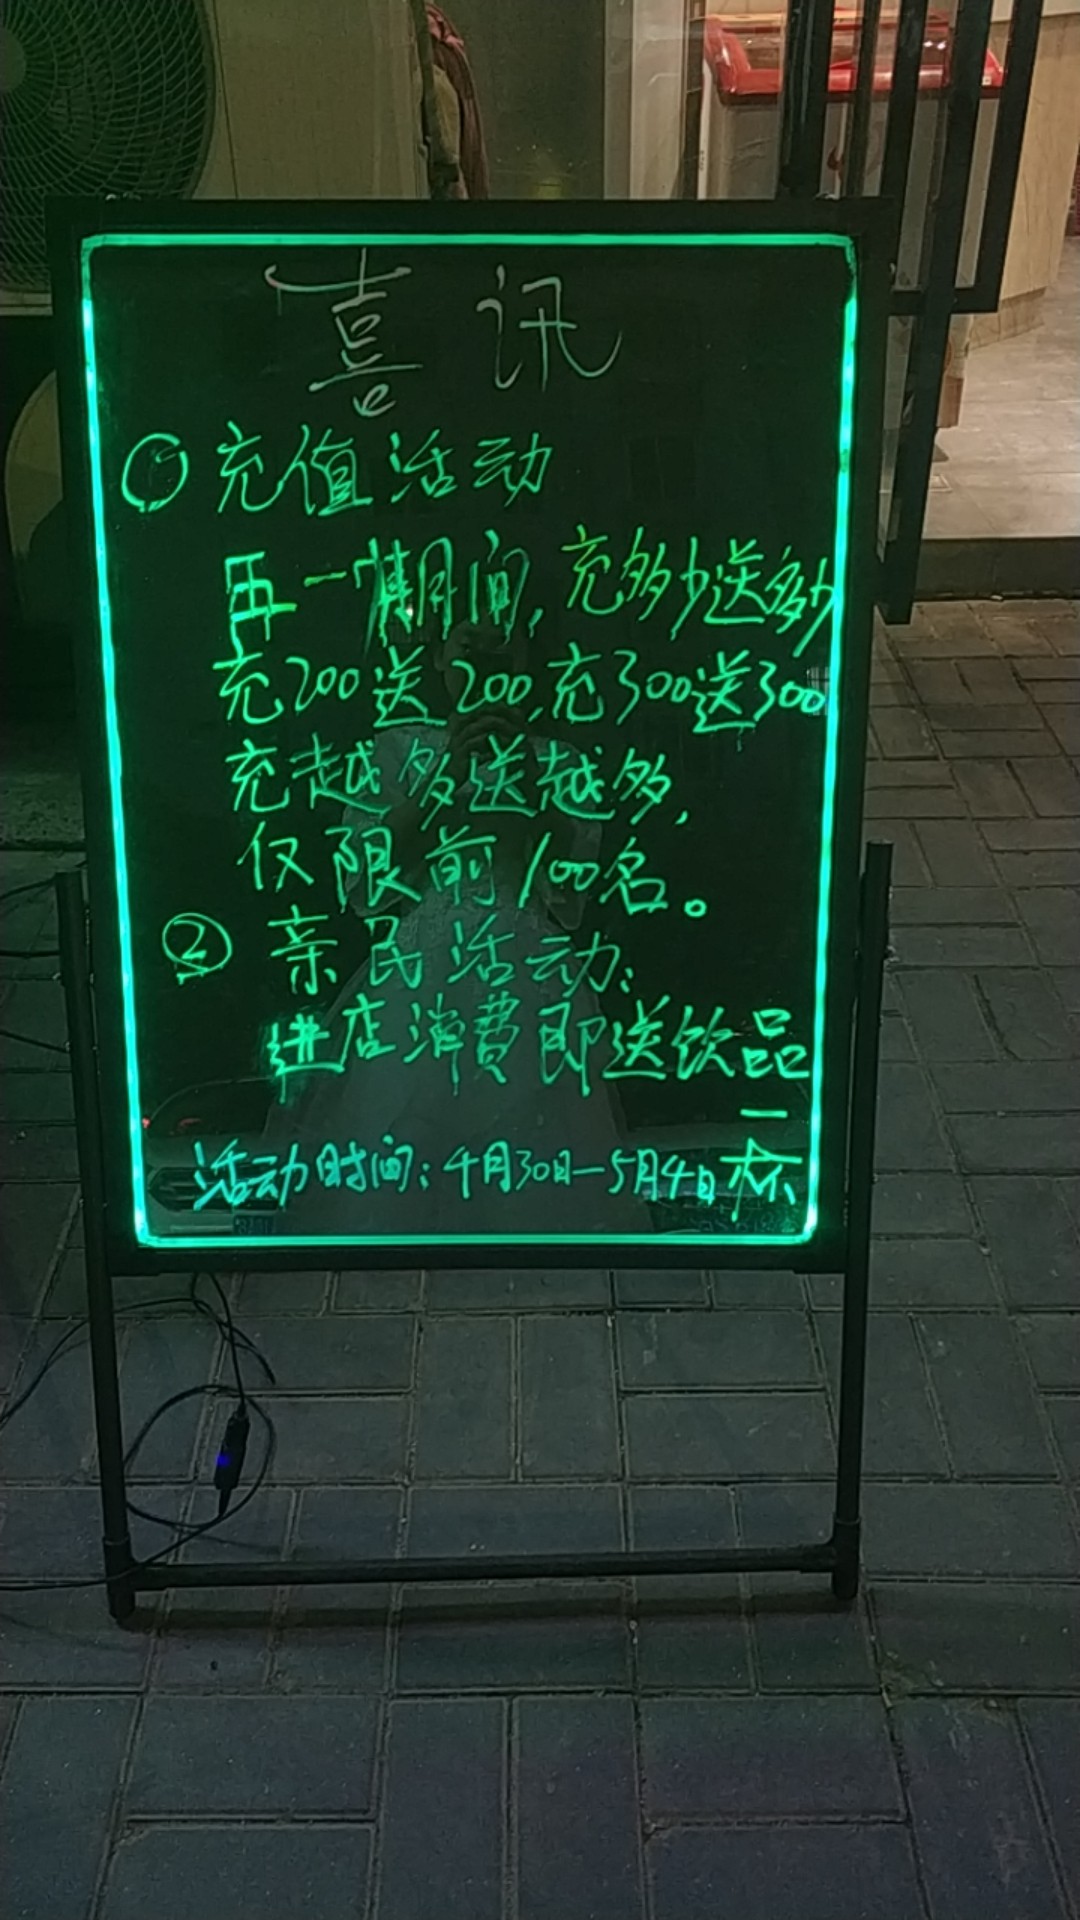 喜讯
① 充值活动
五一期间,充多少送多少
充200送200,充300送300
充越多送越多,
仅限前100名。
② 亲民活动:
进店消费即送饮品
一杯
活动时间:4月30日—5月4日